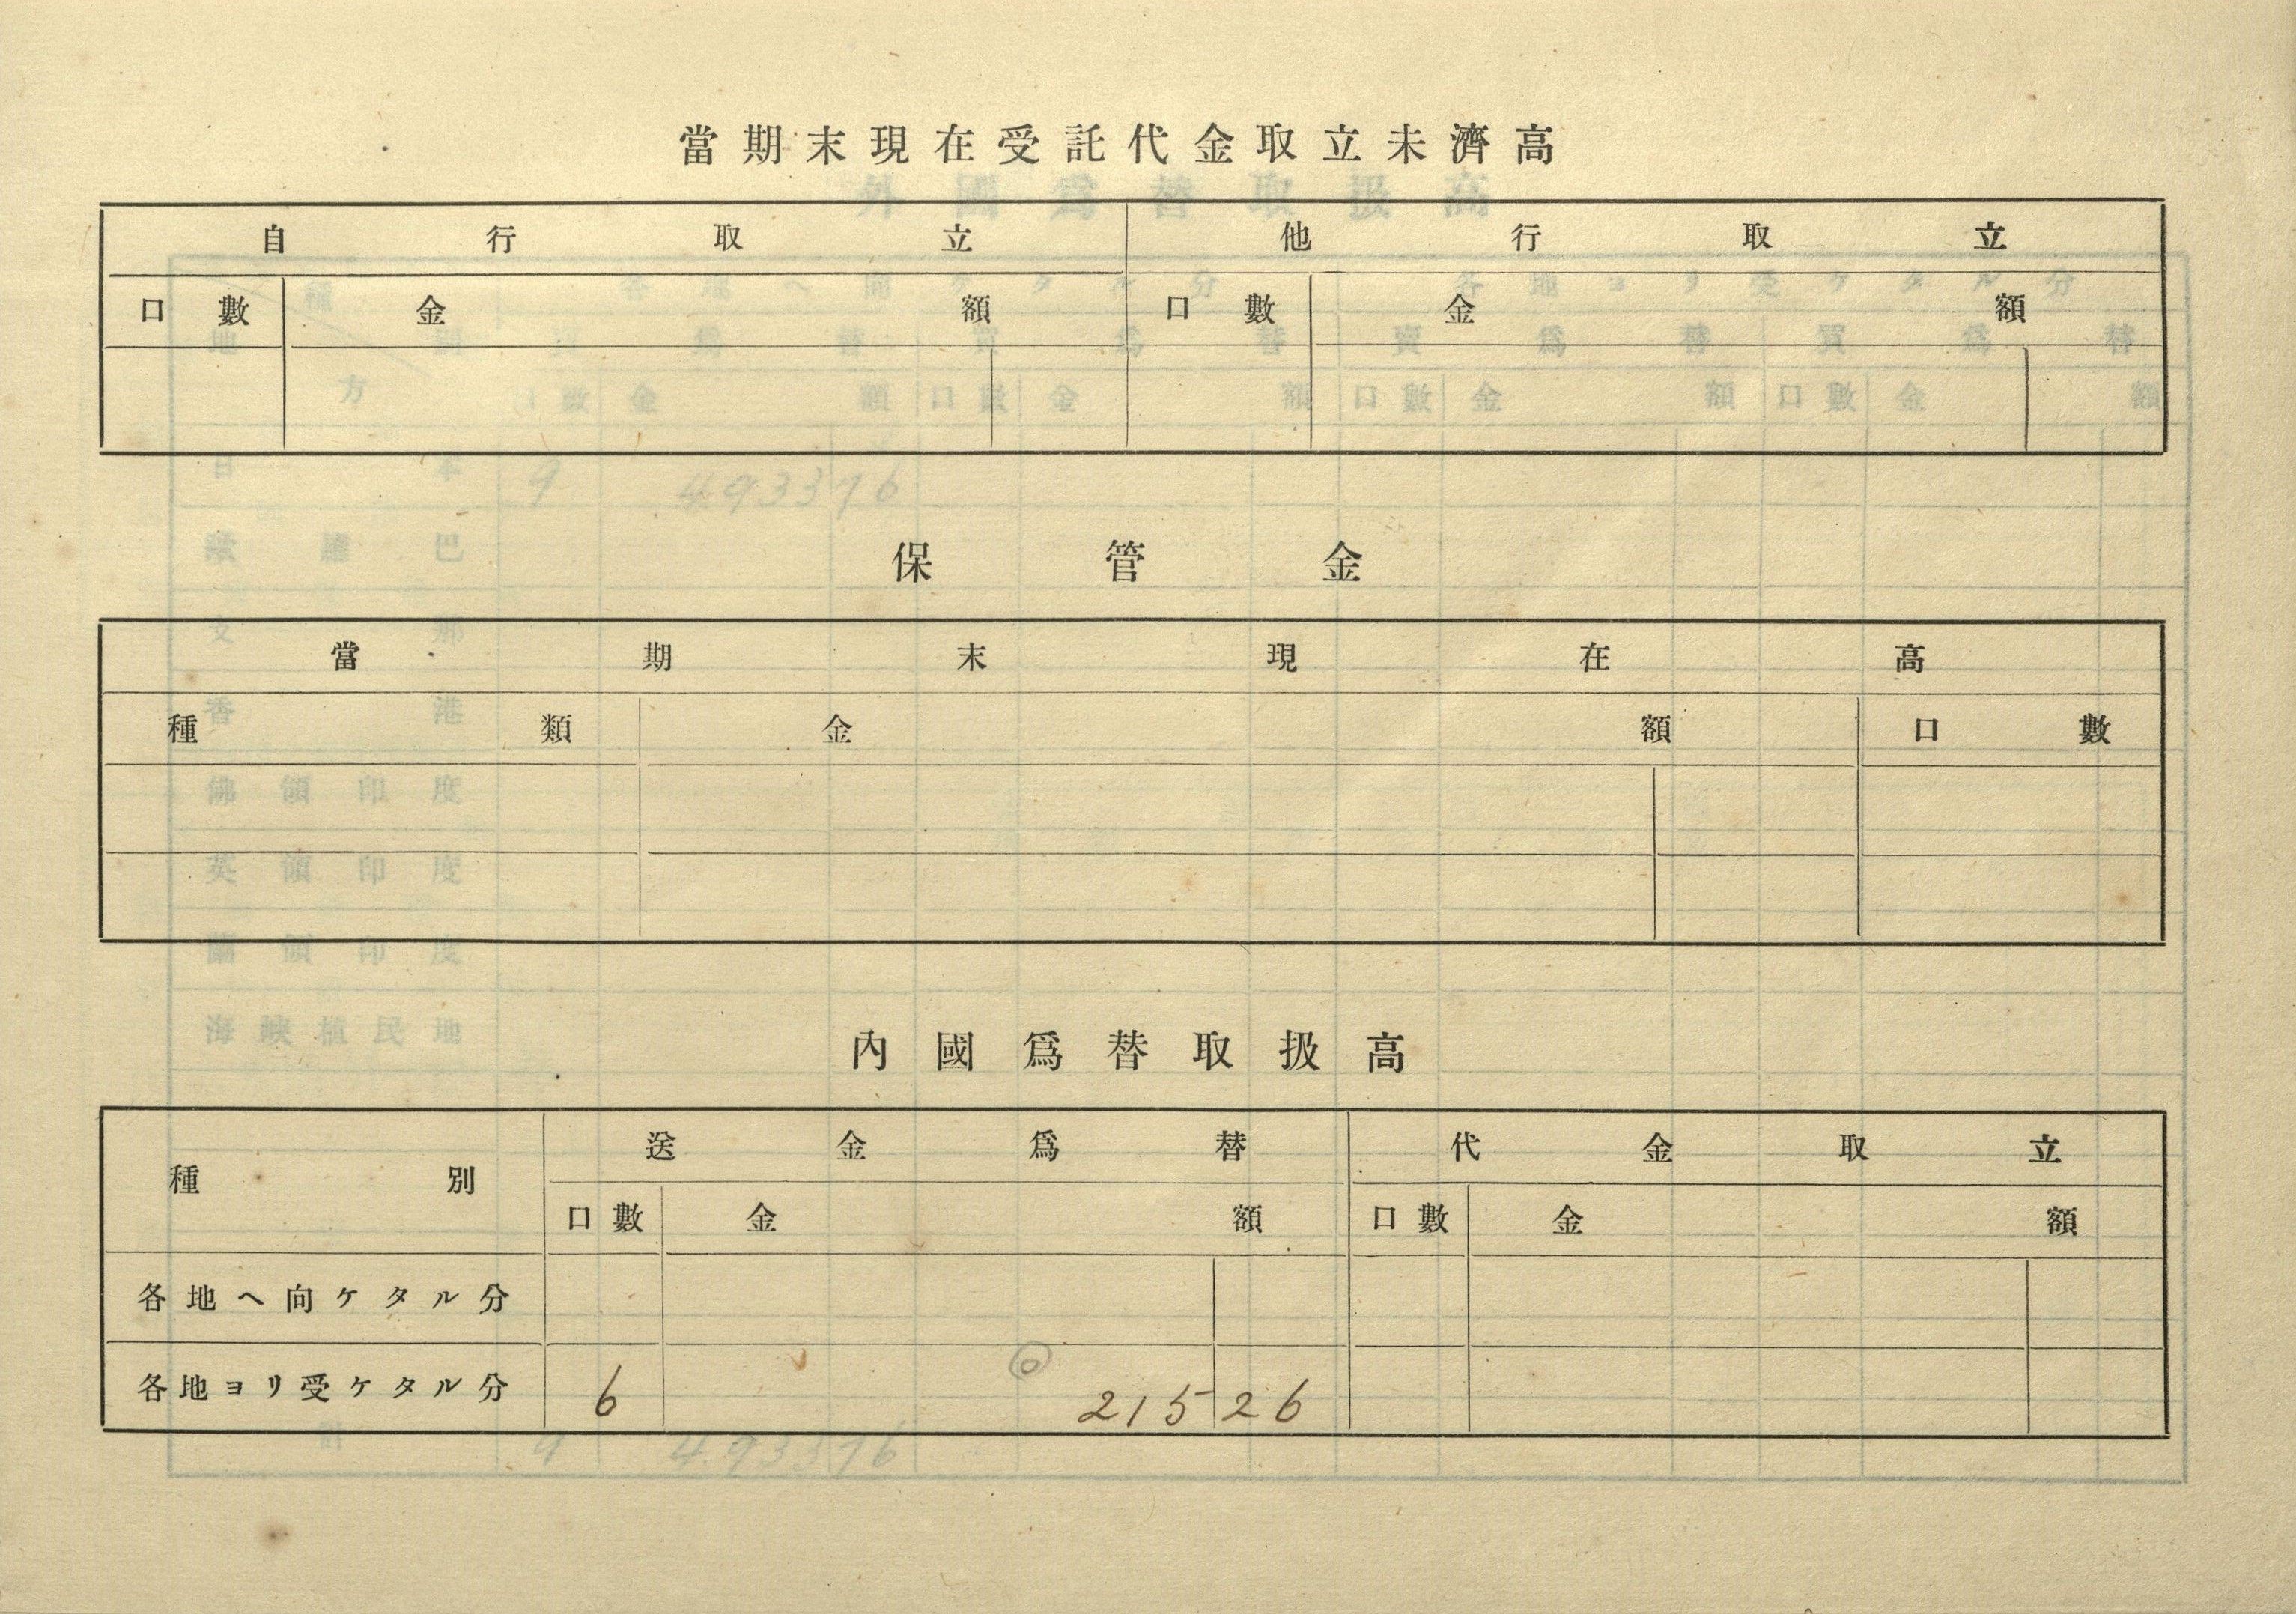 當期末現在受託代金取立未濟高
自行取立 他行取立
口數 金額 口數 金額
保管金
當期末現在高
種類 金額 口數
內國爲替取扱高
種別 送金爲替 代金取立
口數 金額 口數 金額
各地へ向ケタル分
各地ヨリ受ケタル分 6 215 26